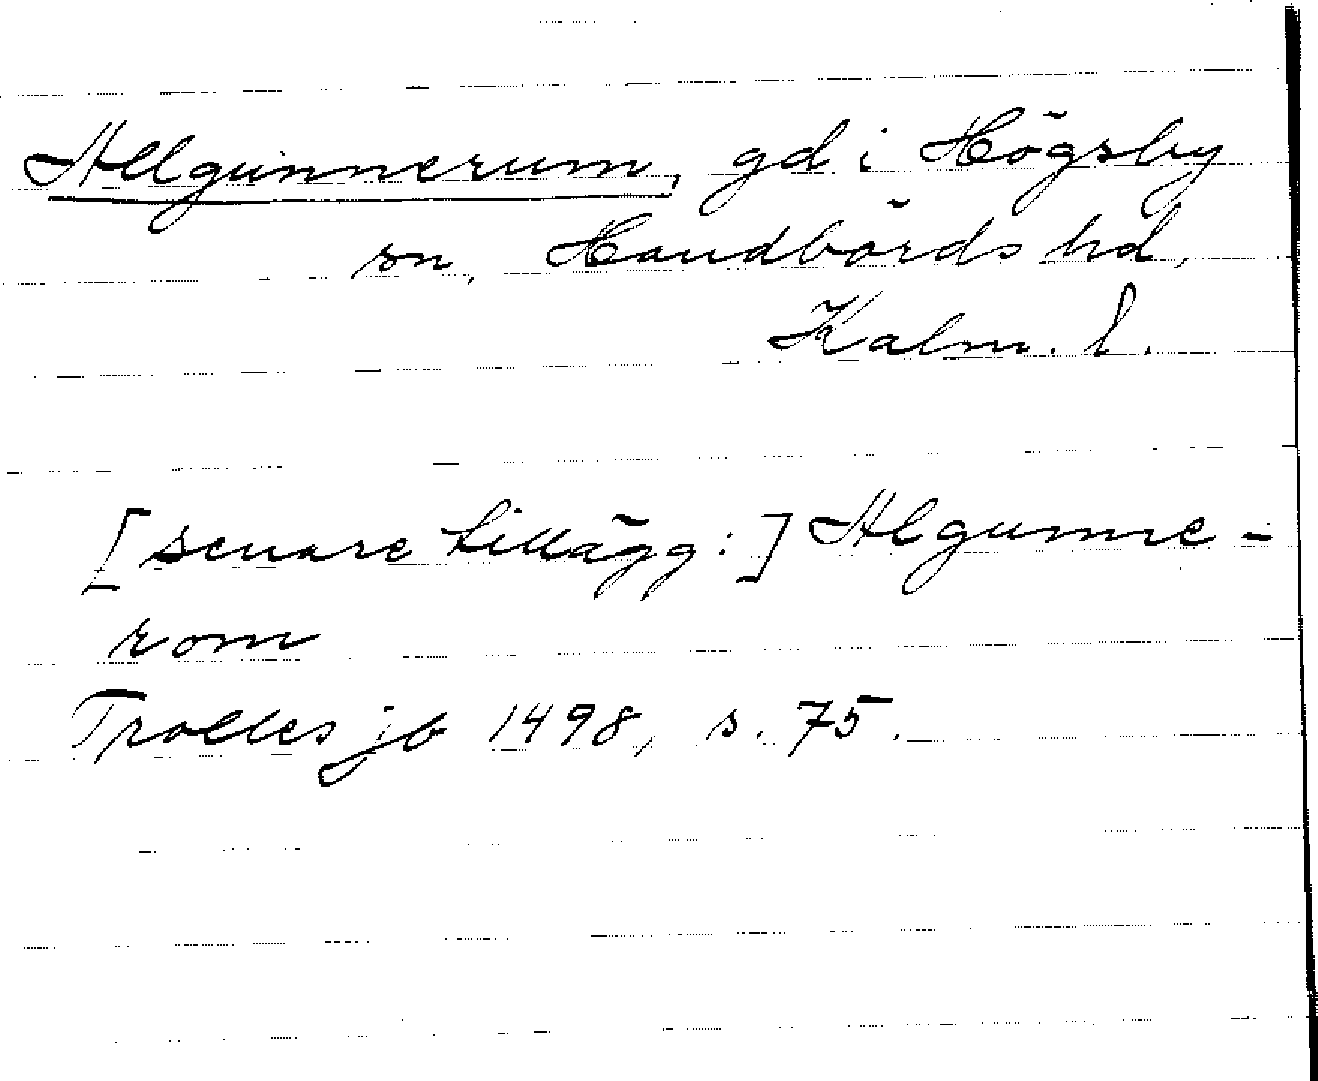 Allgunnerum, gd i Högsby
sn, Handbörds hd,
Kalm. l.
[senare tillägg:] Algunne-
rom
Trolles jb 1498, s. 75.